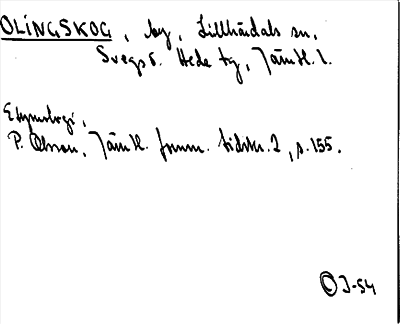 OLINGSKOG, by, Lillhärdals sn,
Svegs o. Hede tg, Jämtl. l.
Etymologi,
P. Olsson, Jämtl. fornm. tidskr. 2, s. 155.
© J-54